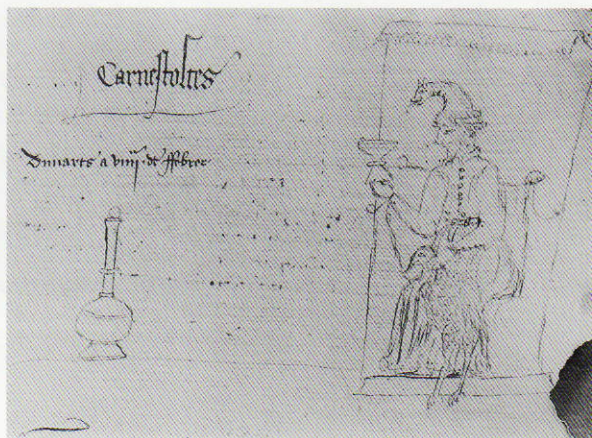 Carnestoltes
Dimarts a viiij· de ffebrer